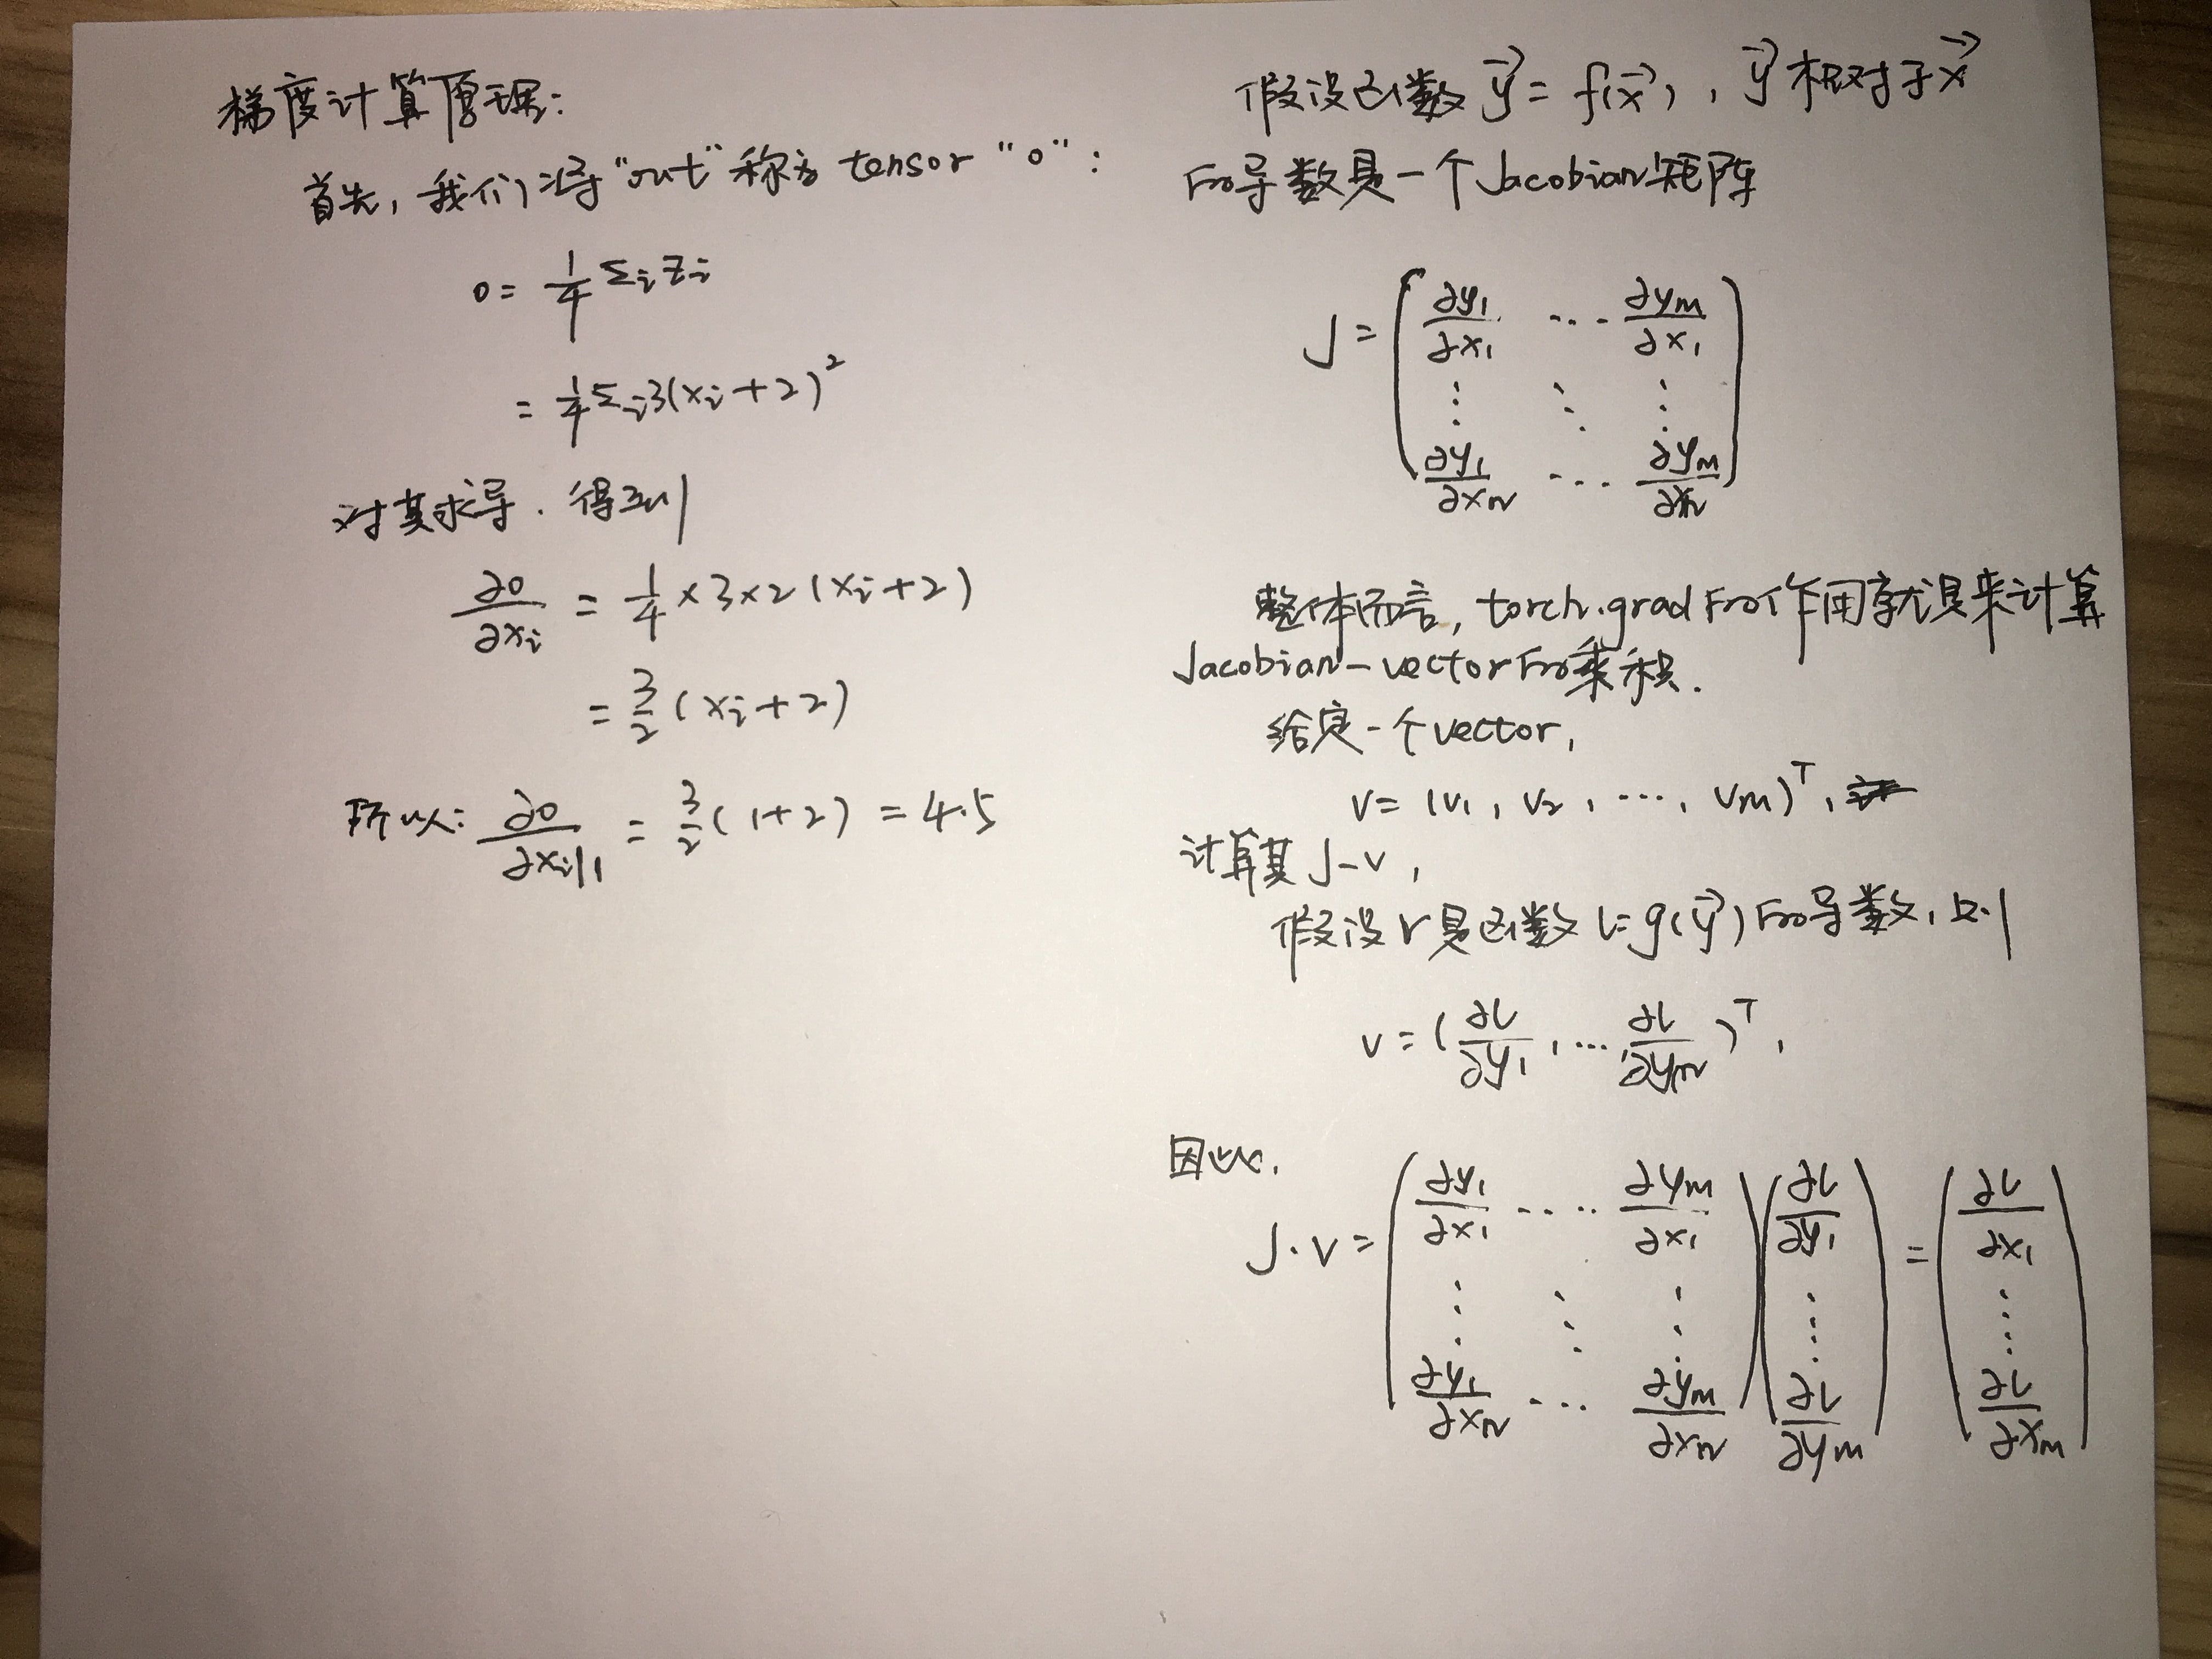 梯度计算原理:
首先, 我们将"out"称为 tensor "o":
o = 1/4 Σᵢ zᵢ
= 1/4 Σᵢ 3(xᵢ+2)²
对其求导. 得到
∂o/∂xᵢ = 1/4 × 3 × 2 (xᵢ+2)
= 3/2 (xᵢ+2)
所以: ∂o/∂xᵢ|₁ = 3/2 (1+2) = 4.5
假设函数 y⃗ = f(x⃗), y⃗ 相对于 x⃗
的导数是一个Jacobian矩阵
J = ( ∂y₁/∂x₁ ... ∂yₘ/∂x₁
⋮ ⋱ ⋮
∂y₁/∂xₙ ... ∂yₘ/∂xₙ )
整体而言, torch.grad的作用就是来计算
Jacobian-vector的乘积.
给定一个vector,
v = (v₁, v₂, ..., vₘ)ᵀ,
计算其 J-v,
假设v是函数 l=g(y⃗)的导数, 则
v = (∂l/∂y₁, ... ∂l/∂yₘ)ᵀ,
因此.
J·v = ( ∂y₁/∂x₁ .... ∂yₘ/∂x₁ ) ( ∂l/∂y₁ ) = ( ∂l/∂x₁ )
⋮ ⋱ ⋮ ⋮ ⋮
∂y₁/∂xₙ ... ∂yₘ/∂xₙ ∂l/∂yₘ ∂l/∂xₘ